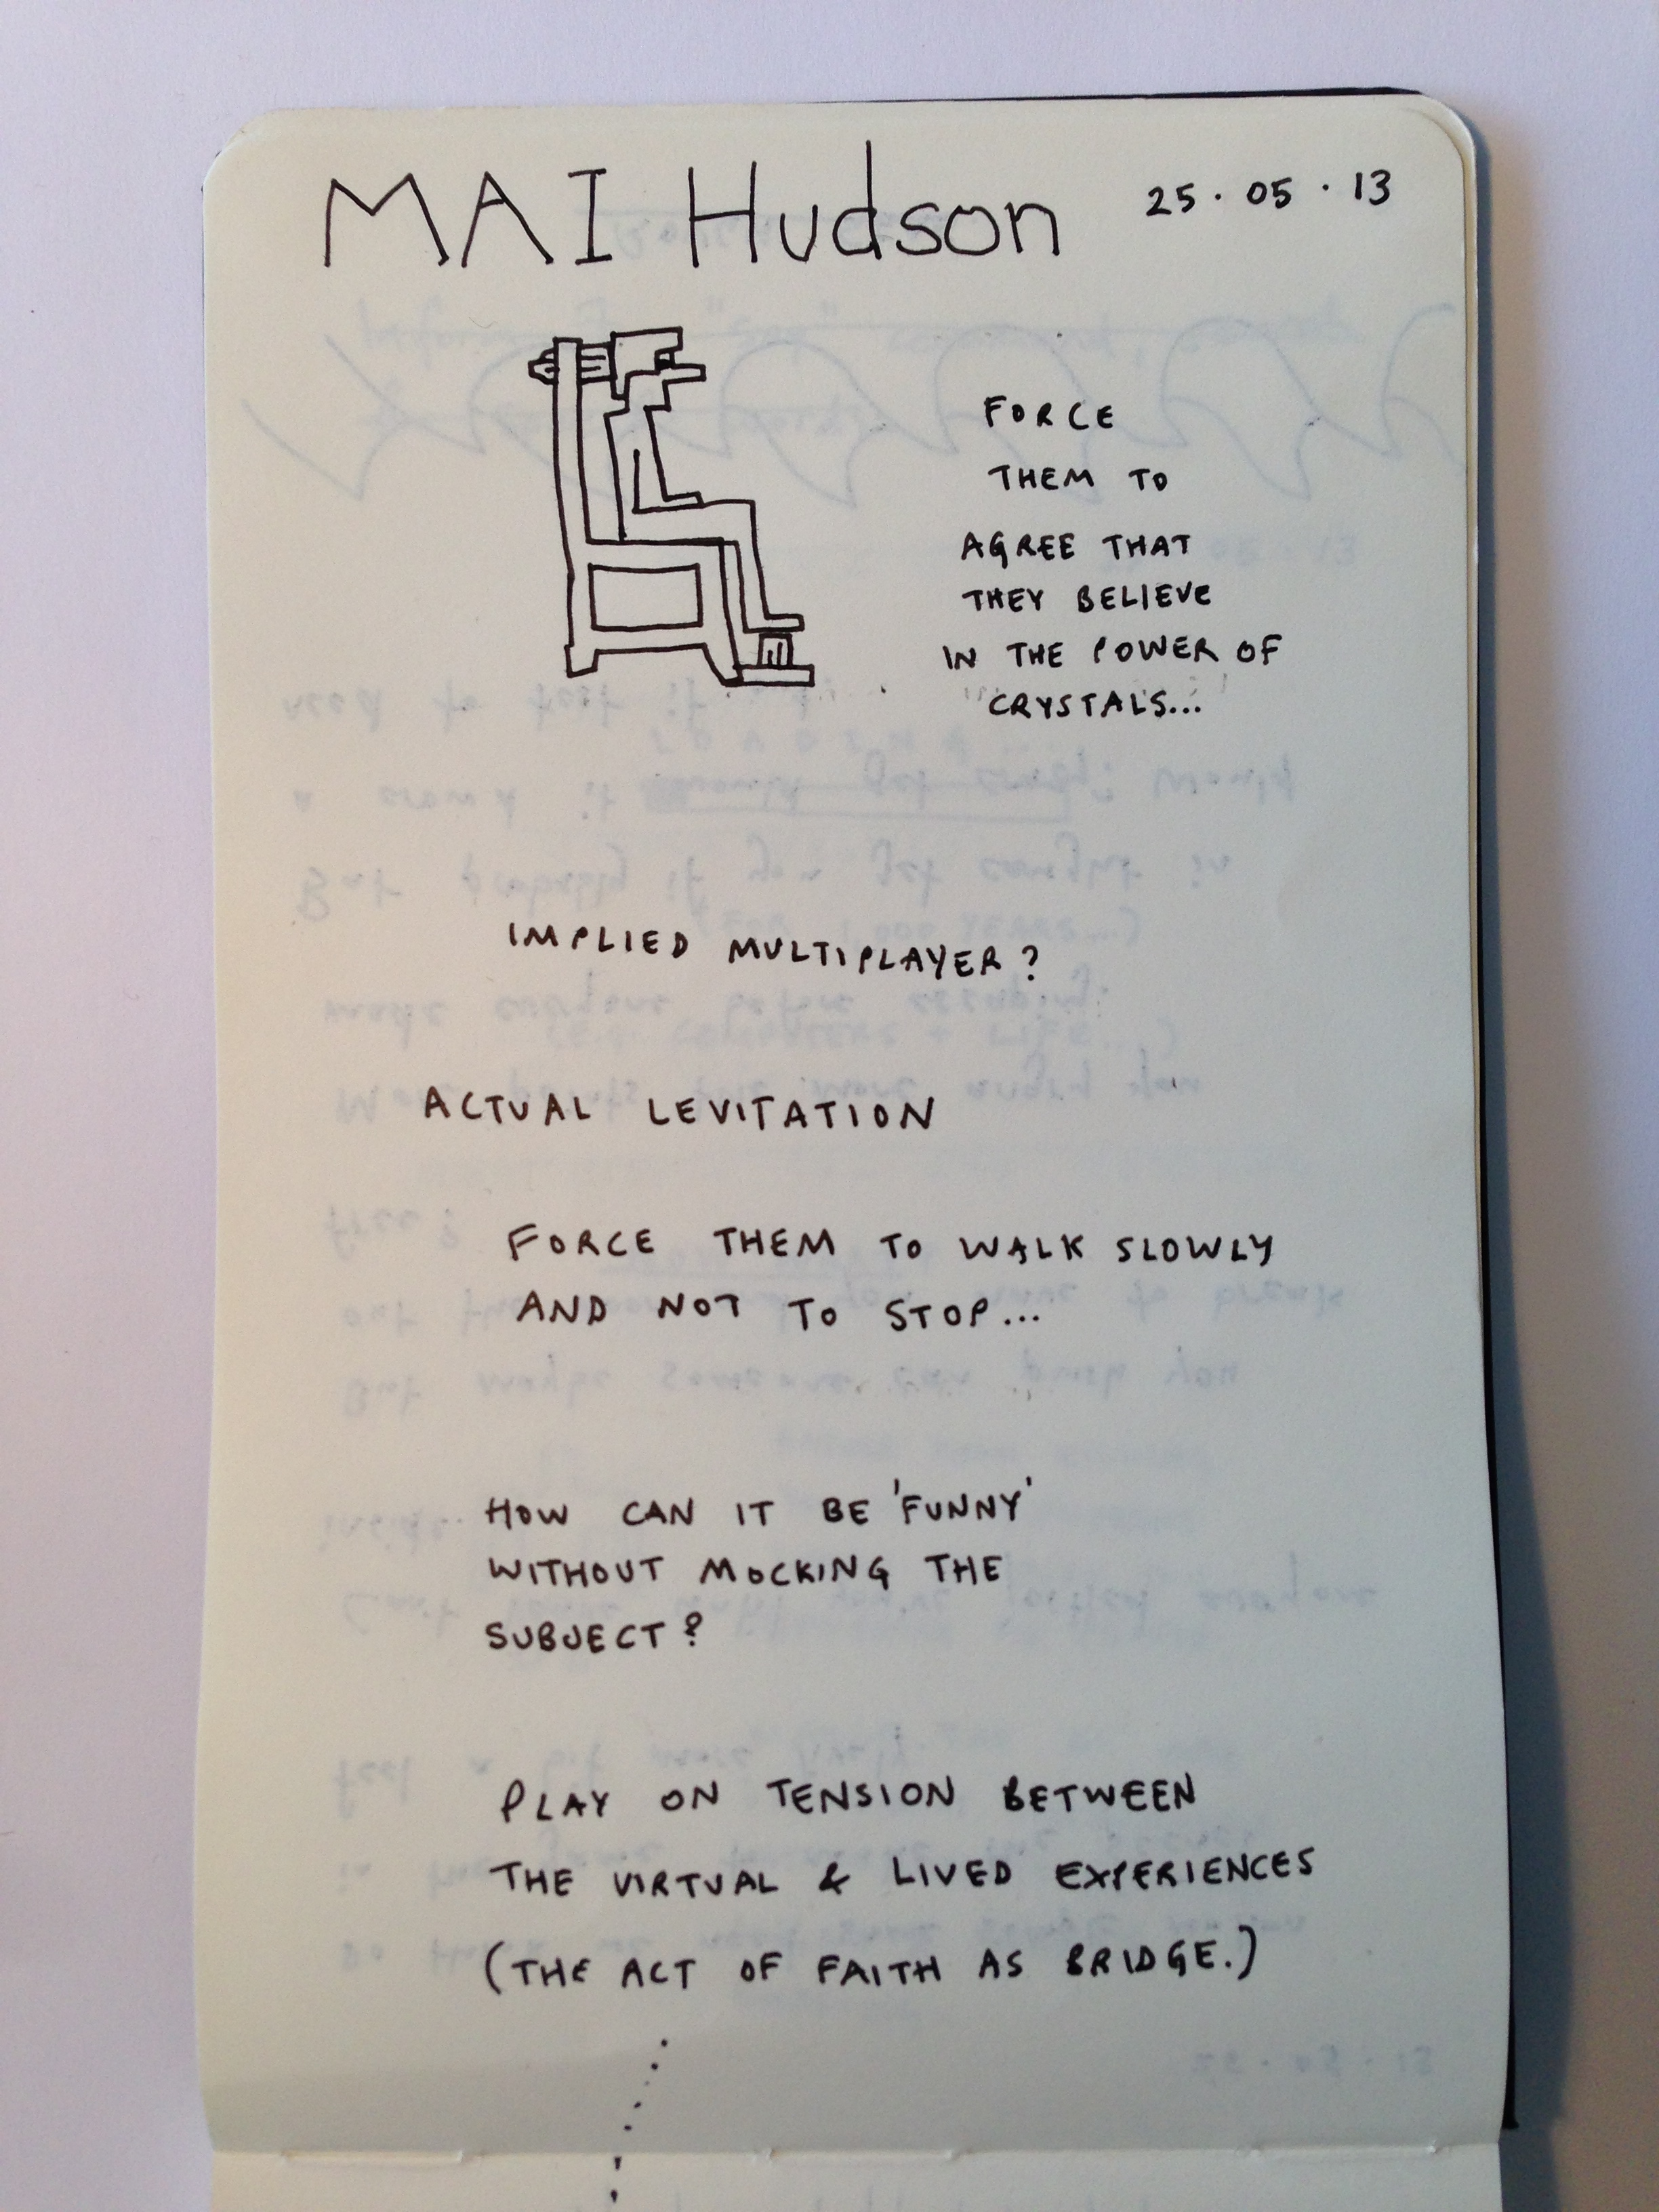 MAI Hudson
25.05.13
FORCE
THEM TO
AGREE THAT
THEY BELIEVE
IN THE POWER OF
CRYSTALS...
IMPLIED MULTIPLAYER?
ACTUAL LEVITATION
FORCE THEM TO WALK SLOWLY
AND NOT TO STOP...
HOW CAN IT BE 'FUNNY'
WITHOUT MOCKING THE
SUBJECT?
PLAY ON TENSION BETWEEN
THE VIRTUAL & LIVED EXPERIENCES
(THE ACT OF FAITH AS BRIDGE.)